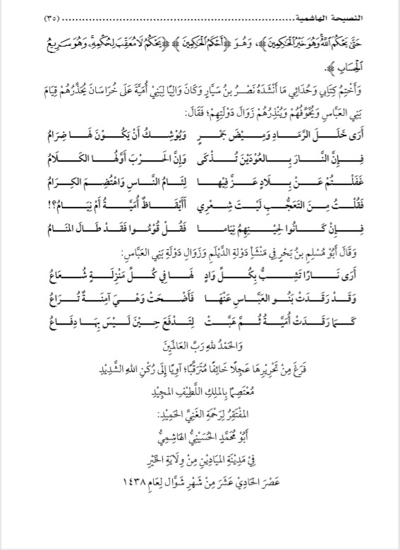 النصيحة الهاشمية (٣٥)
حَتَّى يَحْكُمَ اللَّهُ وَهُوَ خَيْرُ الْحَاكِمِينَ﴾، وَهُوَ ﴿أَحْكَمُ الْحَاكِمِينَ﴾ ﴿يَحْكُمُ لَا مُعَقِّبَ لِحُكْمِهِ، وَهُوَ سَرِيعُ
الْحِسَابِ﴾.
وَأَخْتِمُ كِتَابِي وَحُدَائِي مَا أَنْشَدَهُ نَصْرُ بنُ سَيَّارٍ وَكَانَ وَالِيًا لِبَنِي أُمَيَّةَ عَلَى خُرَاسَانَ يُحَذِّرُهُمْ قِيَامَ
بَنِي العَبَّاسِ وَيُخَوِّفُهُمْ وَيُنْذِرُهُمْ زَوَالَ دَوْلَتِهِمْ؛ فَقَالَ:
أَرَى خَلَلَ الرَّمَادِ وَمِيْضَ جَمْرٍ وَيُوْشِكُ أَنْ يَكُوْنَ لَهَا ضِرَامُ
فَإِنَّ النَّارَ بِالعُوْدَيْنِ تُذْكَى وَإِنَّ الحَرْبَ أَوَّلُهَا الكَلَامُ
غَفَلْتُمْ عَنْ بِلَادٍ عَزَّ فِيْهَا لِئَامُ النَّاسِ وَاهْتُضِمَ الكِرَامُ
فَقُلْتُ مِنَ التَّعَجُّبِ لَيْتَ شِعْرِي أَأَيْقَاظٌ أُمَيَّةُ أَمْ نِيَامُ؟!
فَإِنْ كَانُوا لِحِيْنِهِمُ نِيَامًا فَقُلْ قُوْمُوا فَقَدْ طَالَ المَنَامُ
وَقَالَ أَبُو مُسْلِمِ بنُ بَحْرٍ فِي مَنْشَأِ دَوْلَةِ الدَّيْلَمِ وَزَوَالِ دَوْلَةِ بَنِي العَبَّاسِ:
أَرَى نَارًا تَشِبُّ بِكُلِّ وَادٍ لَهَا فِي كُلِّ مَنْزِلَةٍ شُعَاعُ
وَقَدْ رَقَدَتْ بَنُو العَبَّاسِ عَنْهَا فَأَضْحَتْ وَهْيَ آمِنَةٌ تُرَاعُ
كَمَا رَقَدَتْ أُمَيَّةُ ثُمَّ هَبَّتْ لِتَدْفَعَ حِيْنَ لَيْسَ بِهَا دِفَاعُ
وَالحَمْدُ للهِ رَبِّ العَالَمِيْنَ
فَرَغَ مِنْ تَحْرِيْرِهَا عَجِلًا خَائِفًا مُتَرَقِّبًا؛ آوِيًا إِلَى رُكْنِ اللهِ الشَّدِيْدِ
مُعْتَصِمًا بِالمَلِكِ اللَّطِيْفِ المَجِيْدِ
المُفْتَقِرُ لِرَحْمَةِ الغَنِيِّ الحَمِيْدِ:
أَبُو مُحَمَّدٍ الحُسَيْنِيُّ الهَاشِمِيُّ
فِي مَدِيْنَةِ المَيَادِيْنِ مِنْ وِلَايَةِ الخَيْرِ
عَصْرَ الحَادِيْ عَشَرَ مِنْ شَهْرِ شَوَّالٍ لِعَامِ ١٤٣٨